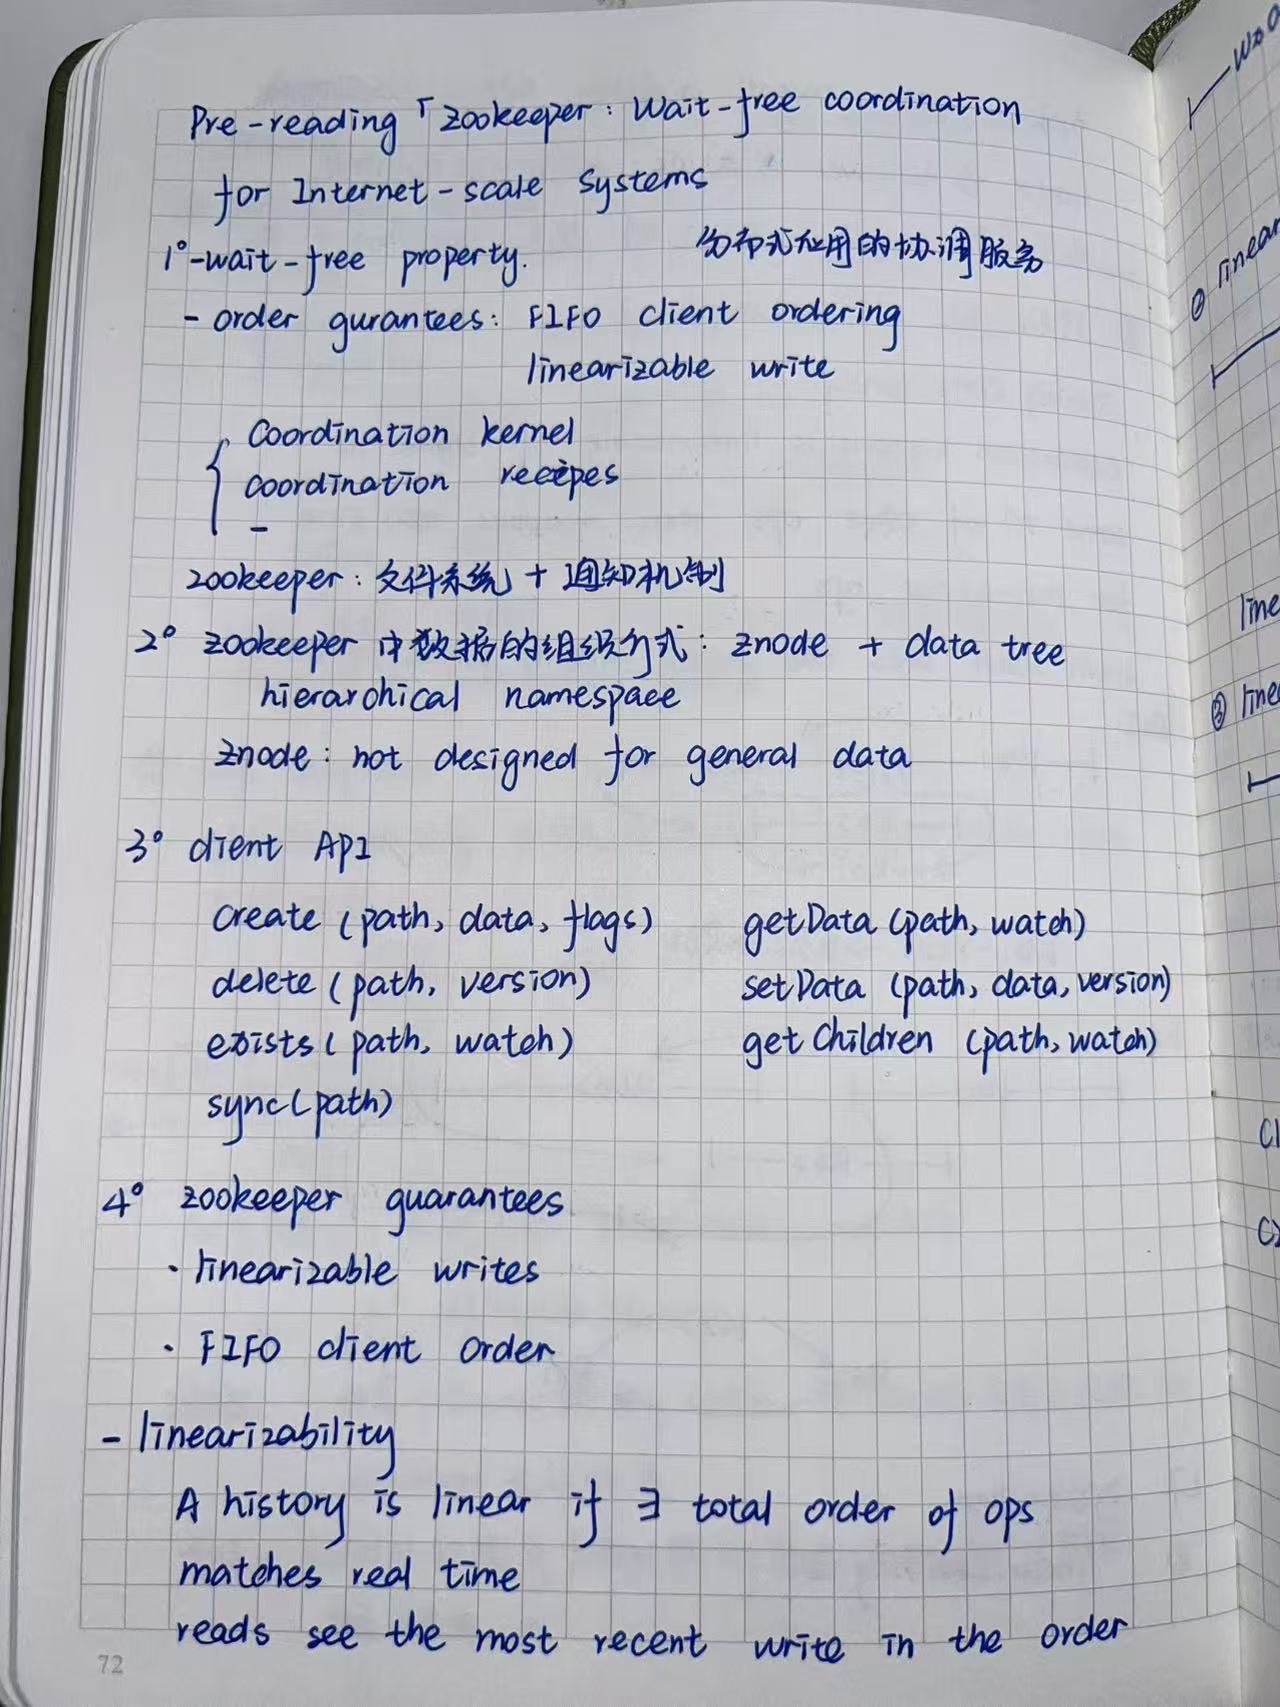 Pre-reading 「zookeeper: Wait-free coordination
for Internet-scale Systems
1°-wait-free property.
分布式应用的协调服务
- order gurantees: FIFO client ordering
linearizable write
Coordination kernel
coordination recipes
-
zookeeper: 文件系统 + 通知机制
2° zookeeper 中数据的组织方式: znode + data tree
hierarchical namespace
znode: not designed for general data
3° client API
create (path, data, flags) getData (path, watch)
delete (path, version) setData (path, data, version)
exists (path, watch) getChildren (path, watch)
sync(path)
4° zookeeper guarantees
· linearizable writes
· FIFO client order
- linearizability
A history is linear if ∃ total order of ops
matches real time
reads see the most recent write in the order
72
② linear
line
③ line
C1
C2